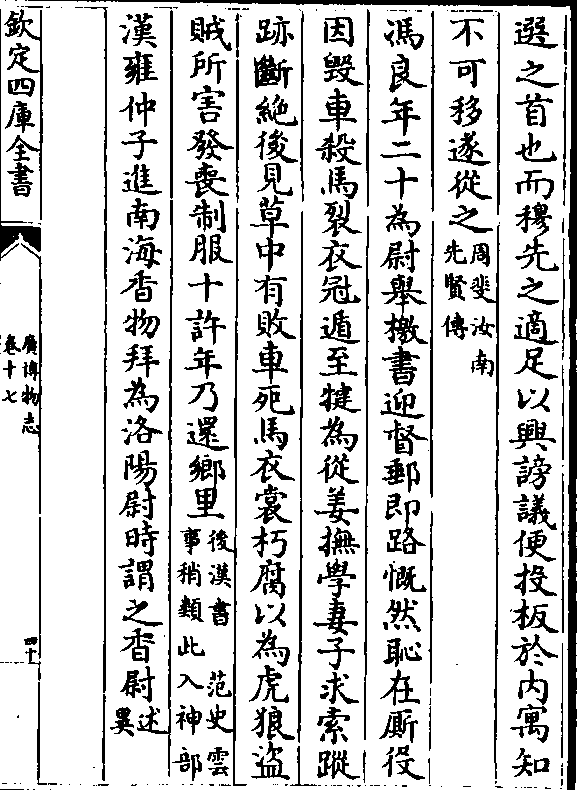 選之首也而穆先之適足以興謗議便投板於内寓知
不可移遂從之周斐汝南先賢傳
馮良年二十為尉舉檄書迎督郵即路慨然恥在厮役
因毁車殺馬裂衣冠遁至犍為從姜撫學妻子求索蹤
跡斷絶後見草中有敗車死馬衣裳朽腐以為虎狼盜
賊所害發喪制服十許年乃還鄉里後漢書 范史雲事稍類此入神部
漢雍仲子進南海香物拜為洛陽尉時謂之香尉述異
欽定四庫全書
廣博物志
卷十七
四十